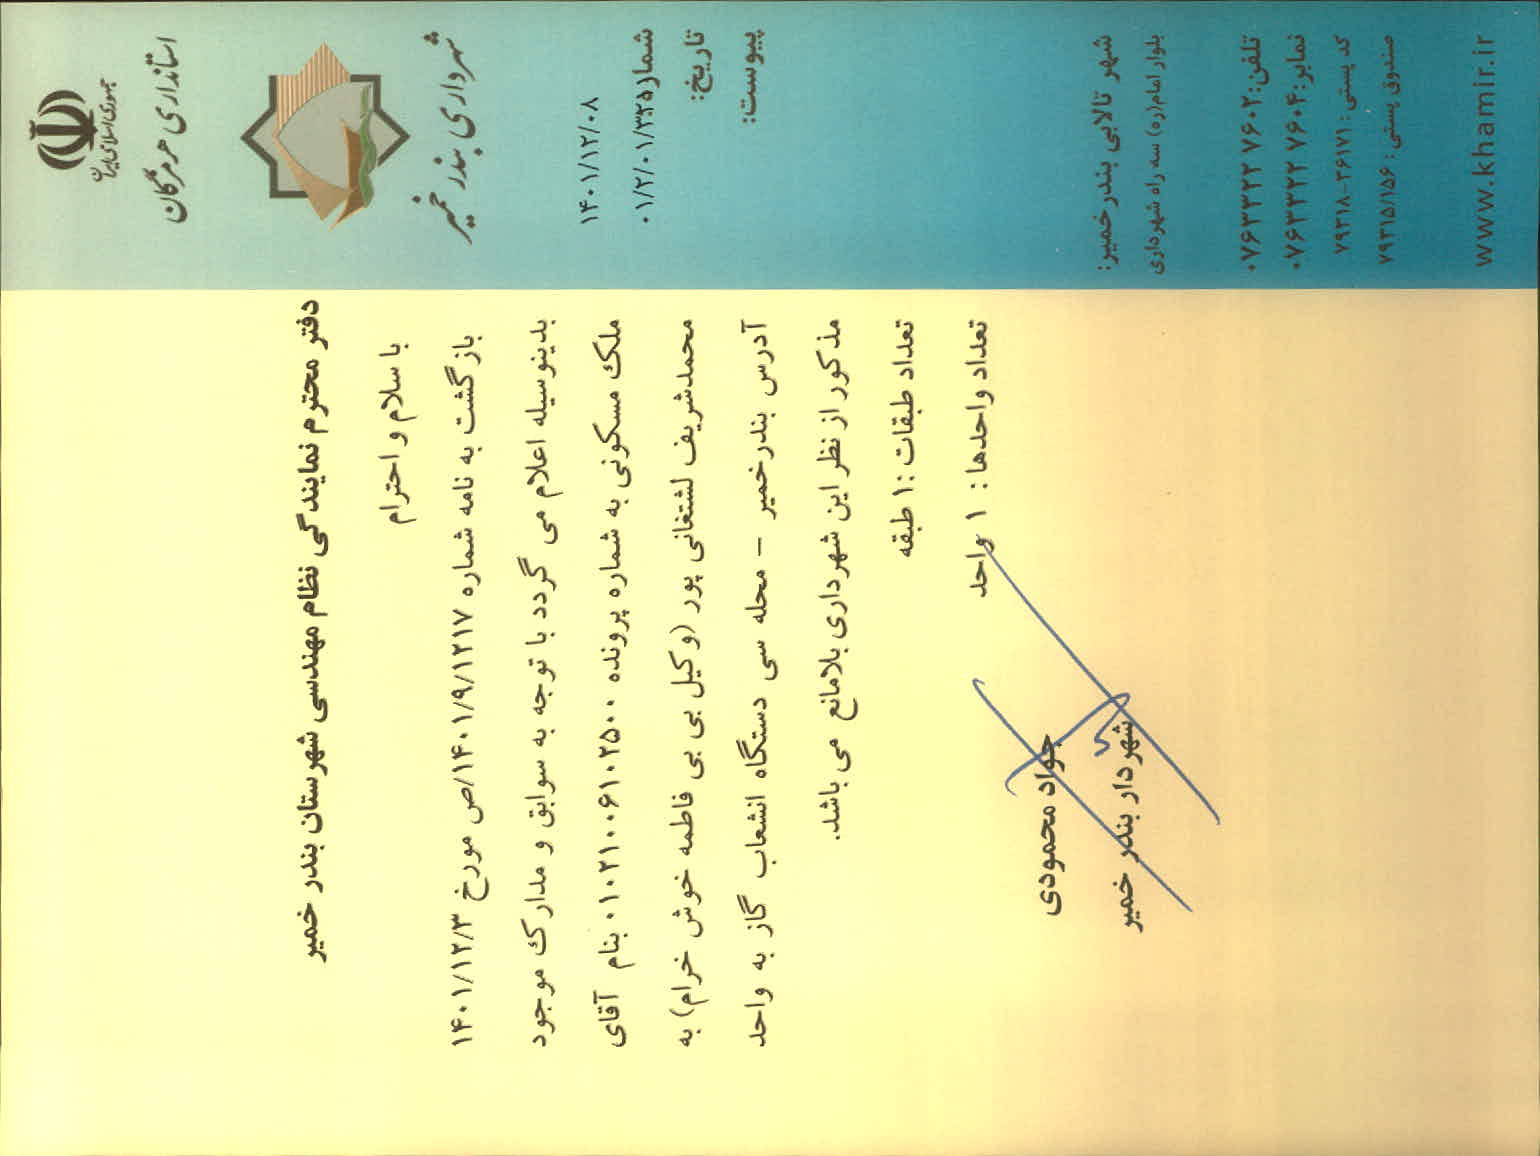 جمهوری اسلامی ایران
استانداری هرمزگان
شهرداری بندر خمیر
۱۴۰۱/۱۲/۰۸
شماره: ۰۱/۲/۰۱/۳۲۵
تاریخ:
پیوست:
دفتر محترم نمایندگی نظام مهندسی شهرستان بندر خمیر
با سلام و احترام
بازگشت به نامه شماره ۱۴۰۱/۹/۱۲۱۷/ص مورخ ۱۴۰۱/۱۲/۳
بدینوسیله اعلام می گردد با توجه به سوابق و مدارک موجود
ملک مسکونی به شماره پرونده ۰۱۰۲۱۰۰۶۱۰۲۵۰۰ بنام آقای
محمدشریف لشتغانی پور (وکیل بی بی فاطمه خوش خرام) به
آدرس بندرخمیر – محله سی دستگاه انشعاب گاز به واحد
مذکور از نظر این شهرداری بلامانع می باشد.
تعداد طبقات :۱ طبقه
تعداد واحدها : ۱ واحد
جواد محمودی
شهردار بندر خمیر
شهر تالابی بندرخمیر:
بلوار امام(ره) سه راه شهرداری
تلفن: ۰۷۶۳۳۲۲ ۷۶۰۲
نمابر: ۰۷۶۳۳۲۲ ۷۶۰۴
کد پستی: ۷۹۳۱۸-۳۶۱۷۱
صندوق پستی: ۷۹۳۱۵/۱۵۶
www.khamir.ir